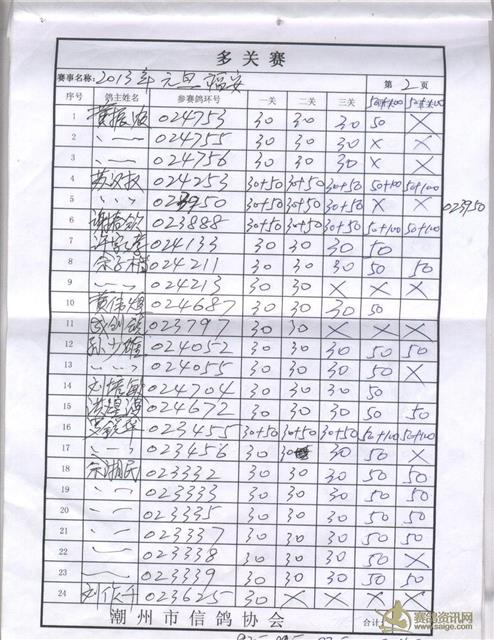 多关赛
赛事名称: 2013年元旦福安 第2页
序号 鸽主姓名 参赛鸽环号 一关 二关 三关 50#100 50#100
1 024753 30 30 30 50 X
2 〃 024755 30 30 30 X X
3 〃 024756 30 30 30 X X
4 苏汉权 024253 30+50 30+50 30+50 50+100 50+100
5 〃 023950 30+50 30+50 30+50 X X 023950
6 023888 30+50 30+50 30+50 50+100 50+100
7 024133 30 30 30 50
8 024211 30 30 30 50 50
9 〃 024213 30 X X X X
10 黄伟雄 024687 30 30 30 50
11 023797 30 30 X X X
12 孙少雄 024052 30 30 30 50 50
13 〃 024055 30 30 30 50 X
14 刘振敏 024704 30 30 30 50
15 024672 30 30 30 50 50
16 023455 30+50 30+50 30+50 50+100 50+100
17 〃 023456 30 30 30 50 X
18 余湘民 023332 30 30 30 50 50
19 〃 023333 30 30 30 50 50
20 〃 023335 30 30 30 50 50
21 〃 023337 30 30 30 50 50
22 〃 023338 30 30 30 50 X
23 〃 023339 30 30 30 50 50
24 023625 30 X X X X
潮州市信鸽协会 合计
赛鸽资讯网
www.saige.com